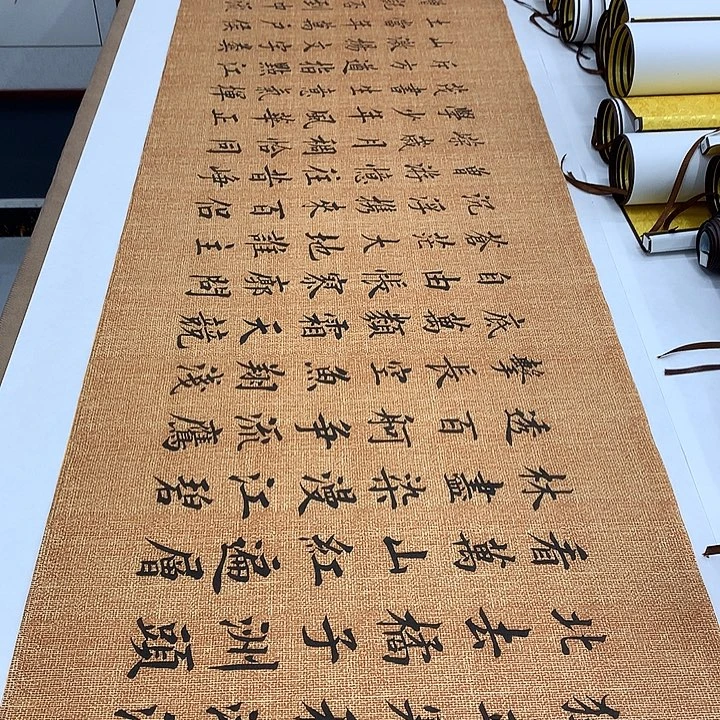 北去橘子洲頭
看萬山紅遍層
林盡染漫江碧
透百舸争流鷹
擊長空魚翔淺
底萬類霜天競
自由悵寥廓問
蒼茫大地誰主
沉浮攜來百侣
曾游憶往昔崢
嶸歲月稠恰同
學少年風華正
茂書生意氣揮
斥方遒指點江
山激揚文字糞
土當年萬户侯